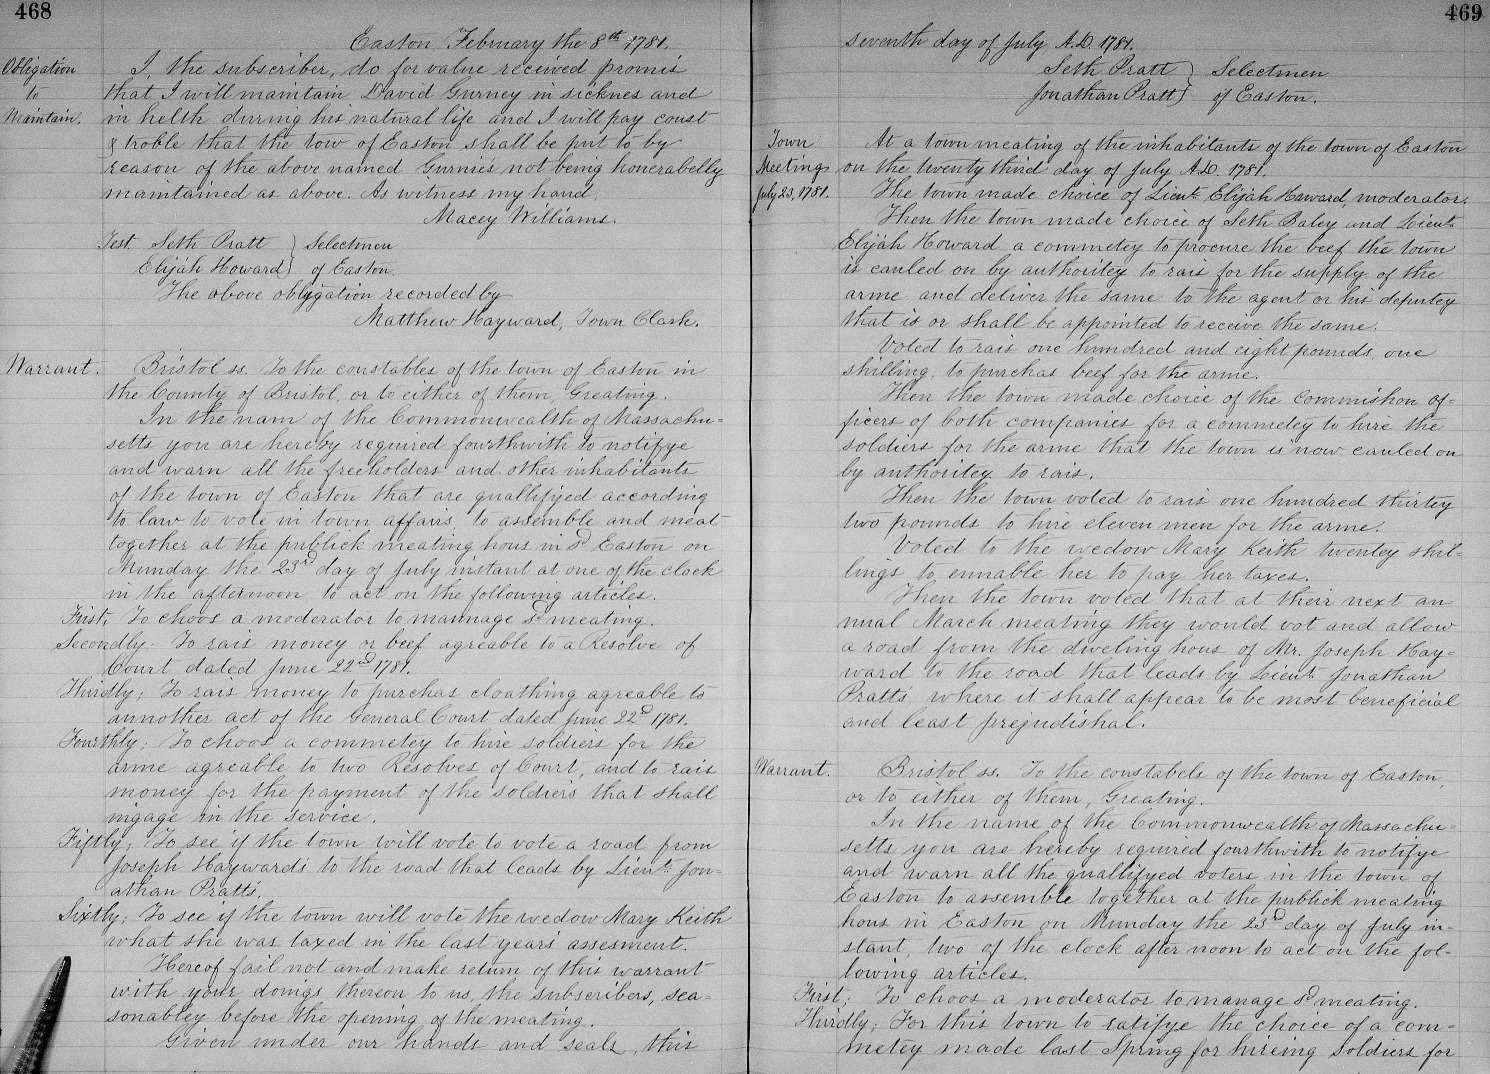 468
Easton February the 8th 1781.
Obligation
to
Maintain.
I, the subscriber, do for value received promis
that I will maintain David Gurney in sicknes and
in helth durring his natural life and I will pay coust
& troble that the tow of Easton shall be put to by
reason of the above named Gurnie's not being honerabelly
maintained as above. As witness my hand.
Macey Williams.
Test. Seth Pratt } Selectmen
Elijah Howard } of Easton.
The above oblygation recorded by
Matthew Hayward, Town Clark.
Warrant.
Bristol ss. To the constables of the town of Easton in
the County of Bristol, or to either of them, Greating.
In the nam of the Commonwealth of Massachu=
setts you are hereby required fourthwith to notifye
and warn all the freeholders and other inhabitants
of the town of Easton that are quallifyed according
to law to vote in town affairs, to assemble and meat
together at the publick meating hous in sd Easton on
Munday the 23d day of July instant at one of the clock
in the afternoon to act on the following articles.
First, To choos a moderator to mannage sd meating.
Secondly; To rais money or beef agreable to a Resolve of
Court dated June 22nd 1781.
Thirdly; To rais money to purchas cloathing agreable to
annother act of the General Court dated June 22d 1781.
Fourthly; To choos a commetey to hire soldiers for the
arme agreable to two Resolves of Court, and to rais
money for the payment of the soldiers that shall
ingage in the service.
Fiftly; To see if the town will vote to vote a road from
Joseph Haywards to the road that leads by Lieut. Jon=
athan Pratts.
Sixtly; To see if the town will vote the wedow Mary Keith
what she was taxed in the last years assesment.
Hereof fail not and make return of this warrant
with your doings thereon to us, the subscribers, sea=
sonabley before the opening of the meating.
Given under our hands and seals, this
469
seventh day of July A.D. 1781.
Seth Pratt } Selectmen
Jonathan Pratt } of Easton.
Town
Meeting
July 23, 1781.
At a town meating of the inhabitants of the town of Easton
on the twenty third day of July A.D. 1781.
The town made choice of Lieut. Elijah Howard, moderator.
Then the town made choice of Seth Baley and Lieut.
Elijah Howard a commetey to procure the beef the town
is cauled on by authoritey to rais for the supply of the
arme and deliver the same to the agent or his deputey
that is or shall be appointed to receive the same.
Voted to rais one hundred and eight pounds, one
shilling, to purchas beef for the arme.
Then the town made choice of the commishon of=
ficers of both companies for a commetey to hire the
soldiers for the arme that the town is now cauled on
by authoritey to rais.
Then the town voted to rais one hundred thirtey
two pounds to hire eleven men for the arme.
Voted to the wedow Mary Keith twentey shil=
lings to ennable her to pay her taxes.
Then the town voted that at their next an
nural March meating they would vot and allow
a road from the dweling hous of Mr. Joseph Hay=
ward to the road that leads by Lieut. Jonathan
Pratts where it shall appear to be most beneficial
and least prejudishal.
Warrant.
Bristol ss. To the constabels of the town of Easton,
or to either of them, Greating.
In the name of the Commonwealth of Massachu=
setts you are hereby required fourthwith to notifye
and warn all the quallifyed voters in the town of
Easton to assemble together at the publick meating
hous in Easton on Munday the 23d day of July in-
stant, two of the clock after noon to act on the fol-
lowing articles.
First; To choos a moderator to manage sd meating.
Thirdly; For this town to ratifye the choice of a com-
metey made last Spring for hireing soldiers for